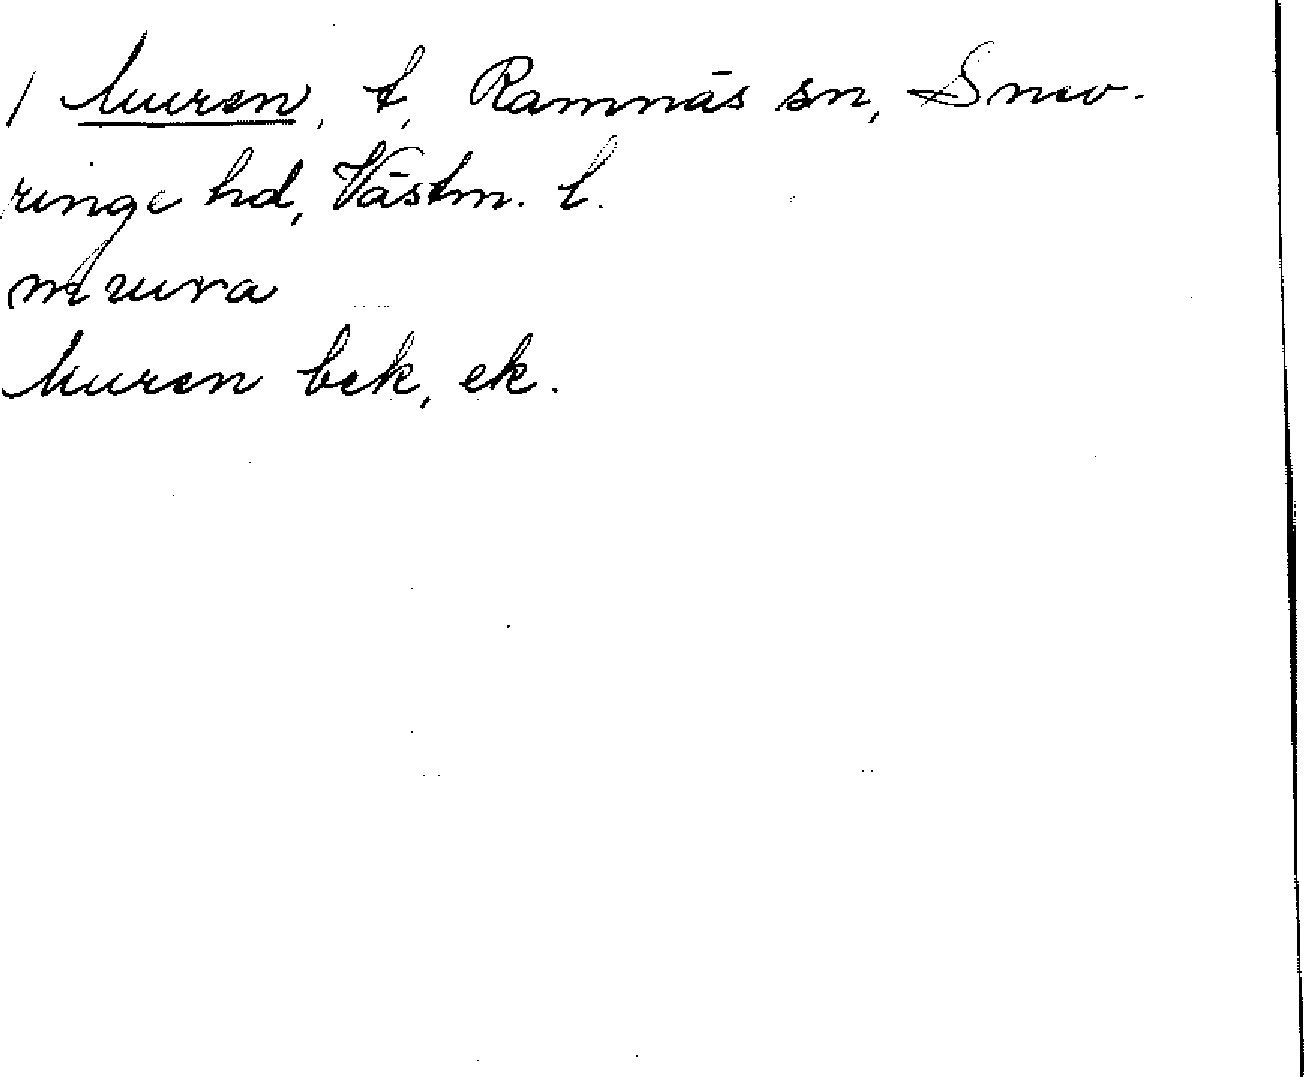 / Muren, t, Ramnäs sn, Snev-
ringe hd, Västm. l.
Muren bek, ek.